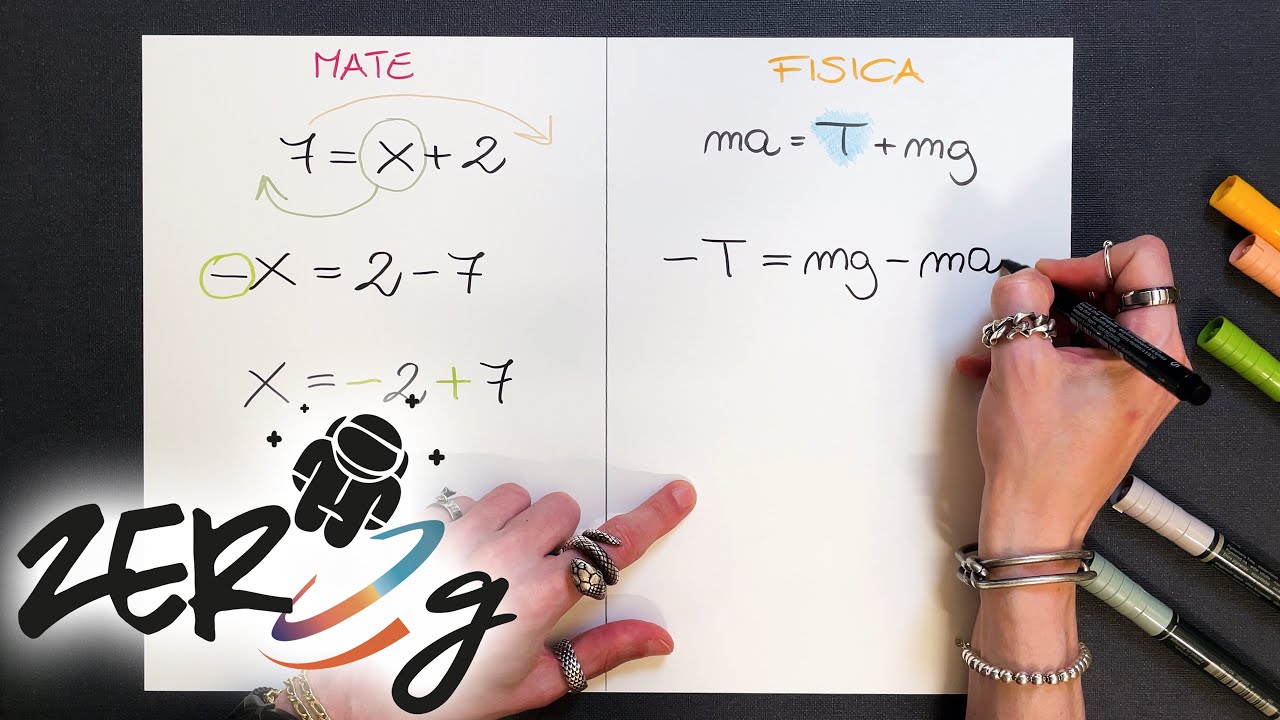 MATE
7 = x + 2
-x = 2 - 7
x = -2 + 7
FISICA
ma = T + mg
-T = mg - ma
ZERO g